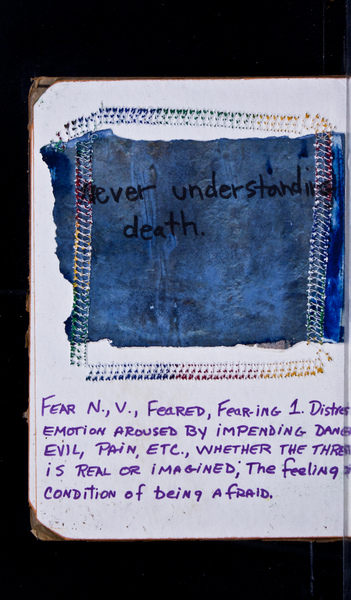 never understanding
death.
FEAR N., V., FEARED, FEAR-ING 1. Distres
EMOTION AROUSED BY IMPENDING DANGE
EVIL, PAIN, ETC., WHETHER THE THRE
IS REAL OR IMAGINED; THE feeling
CONDITION of being AFRAID.